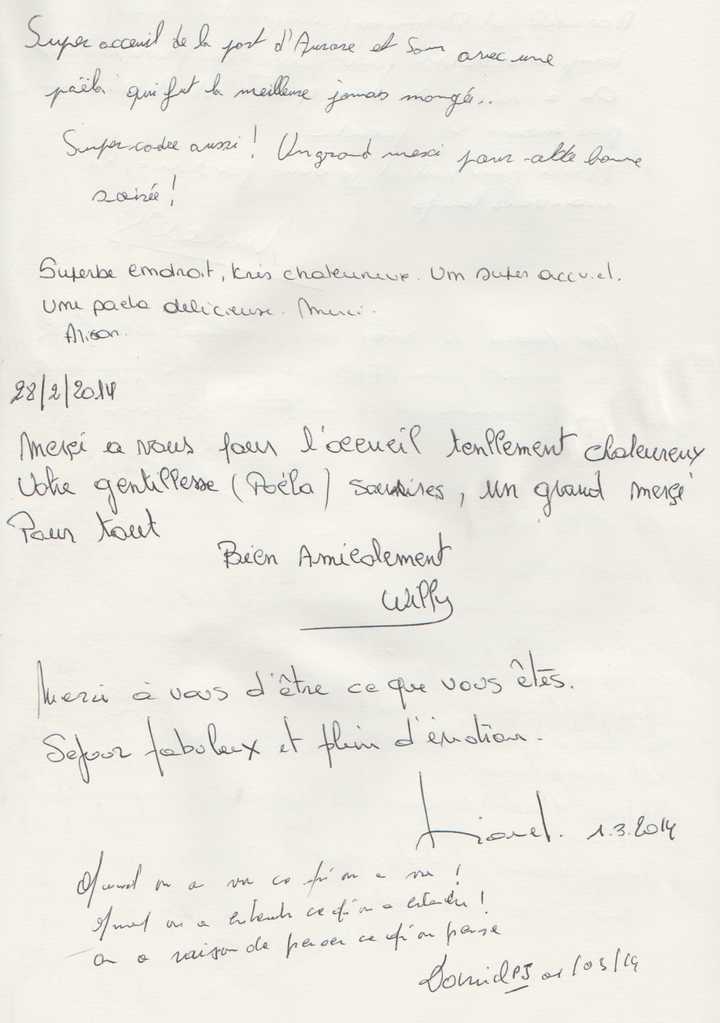 Super acceuil de la part d'Aurore et Sam avec une
paëla qui fut la meilleure jamais mangée..
Super cadre aussi! Un grand merci pour cette bonne
soirée!
Superbe endroit, très chaleureux. Un super accueil.
Une paela délicieuse. Merci.
Alison.
28/2/2014
Merçi a vous pour l'accueil tenllement chaleureux
Votre gentillesse (Paëla) sourires, un grand merçi
Pour tout
Bien Amicalement
Willy
Merci à vous d'être ce que vous êtes.
Sejour fabuleux et plein d'émotion.
Lionel. 1.3.2014
Quand on a vu ce qu'on a vu!
Quand on a entendu ce qu'on a entendu!
on a raison de penser ce qu'on pense
01/03/14